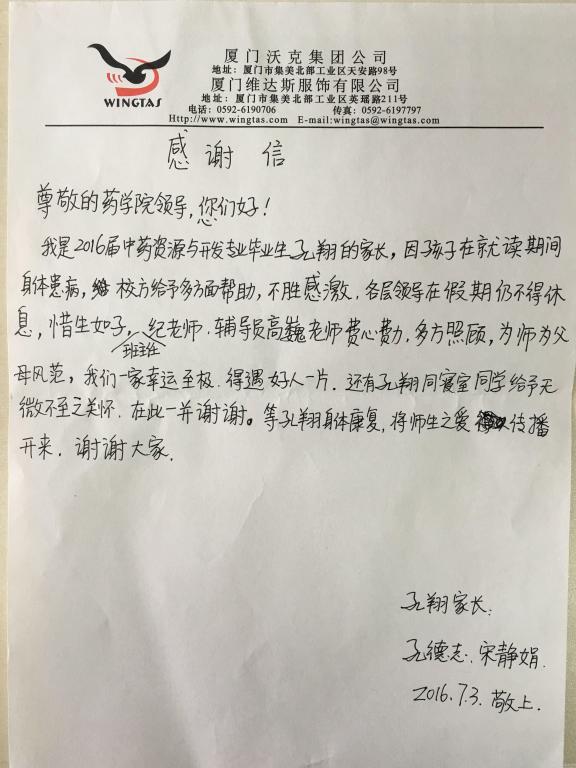 WINGTAS
厦门沃克集团公司
地址：厦门市集美北部工业区天安路98号
厦门维达斯服饰有限公司
地址：厦门市集美北部工业区英瑶路211号
电话：0592-6190706 传真：0592-6197797
Http://www.wingtas.com E-mail:wingtas@wingtas.com
感谢信
尊敬的药学院领导，您们好！
我是2016届中药资源与开发专业毕业生孔翔的家长，因孩子在就读期间
身体患病，校方给予多方面帮助，不胜感激．各层领导在假期仍不得休
息，惜生如子，班主任纪老师．辅导员高巍老师费心费力，多方照顾，为师为父
母风范，我们一家幸运至极．得遇好人一片．还有孔翔同寝室同学给予无
微不至之关怀．在此一并谢谢。等孔翔身体康复，将师生之爱传播
开来．谢谢大家．
孔翔家长：
孔德志．宋静娟．
2016.7.3．敬上．